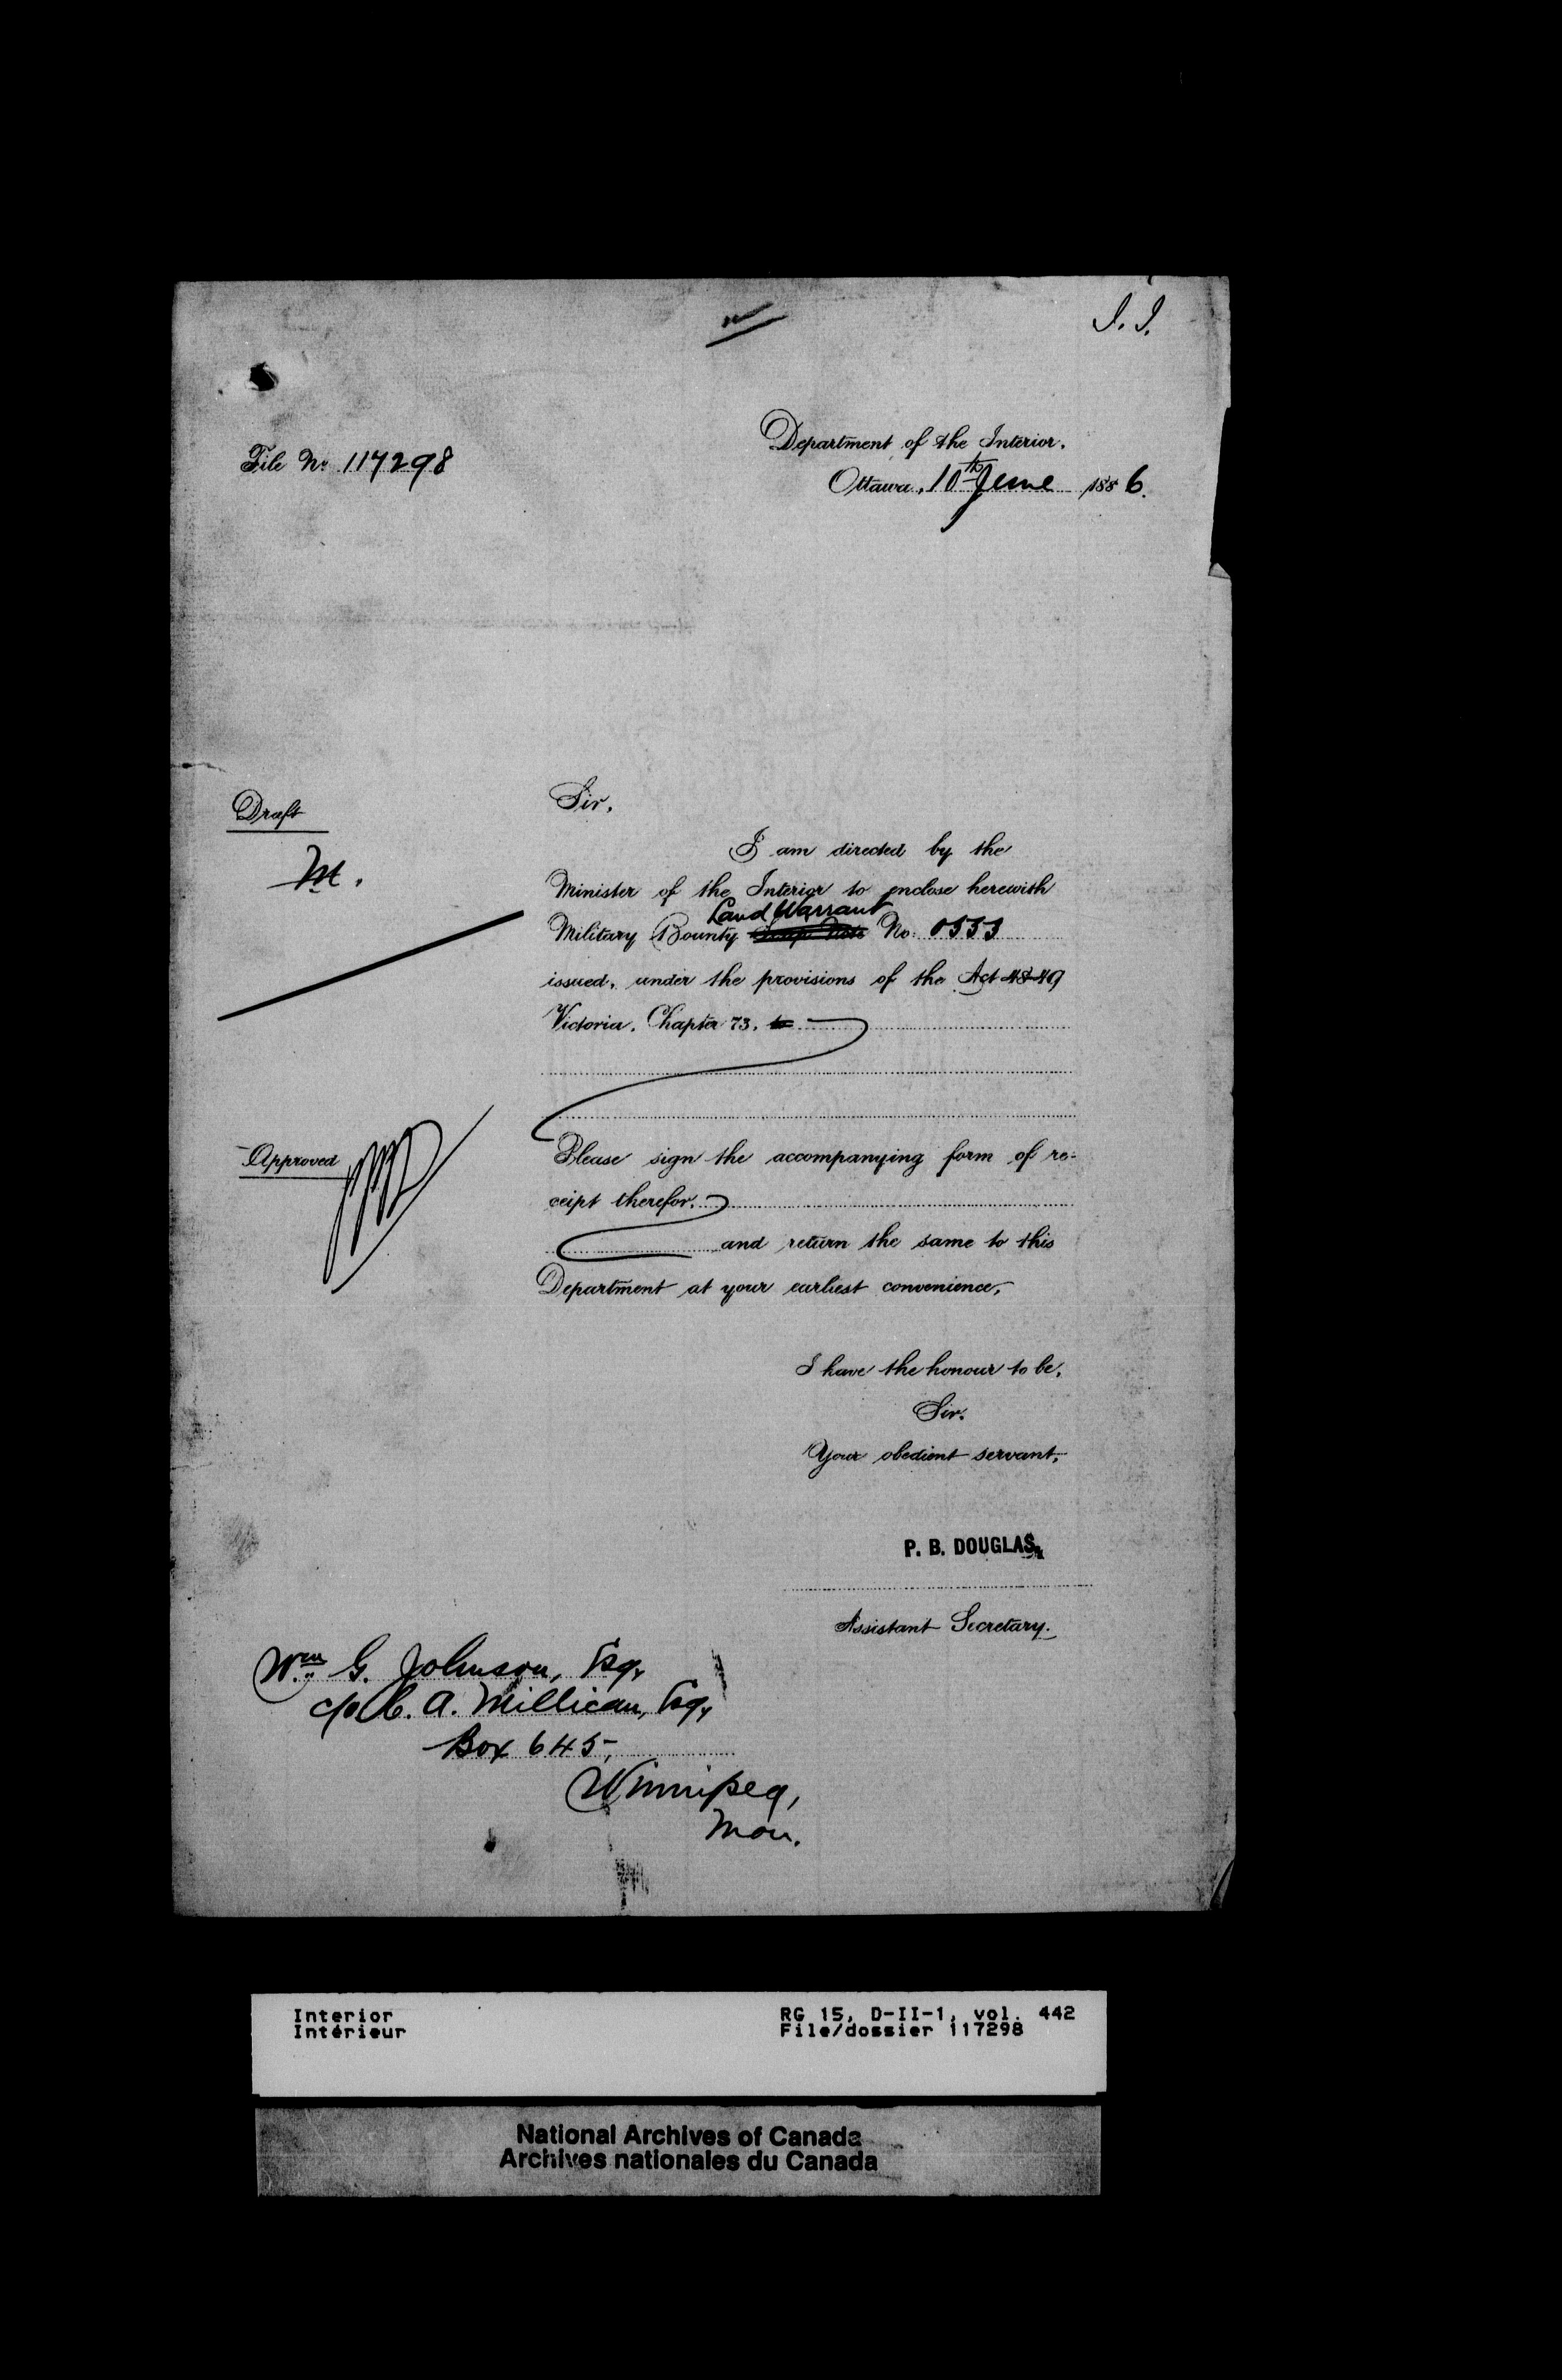 J. J.
Department of the Interior.
File No. 117298
Ottawa, 10th June 1886.
Draft
Sir,
M.
I am directed by the
Minister of the Interior to enclose herewith
Land Warrant
Military Bounty Scrip Note No. 0533
issued, under the provisions of the Act 48-49
Victoria, Chapter 73, to
Approved
Please sign the accompanying form of re-
ceipt therefor,
and return the same to this
Department at your earliest convenience,
I have the honour to be,
Sir,
Your obedient servant,
P. B. DOUGLAS,
Assistant Secretary.
Wm. G. Johnson, Esq,
c/o C. A. Millican, Esq,
Box 645,
Winnipeg,
Man.
Interior
Intérieur
RG 15, D-II-1, vol. 442
File/dossier 117298
National Archives of Canada
Archives nationales du Canada